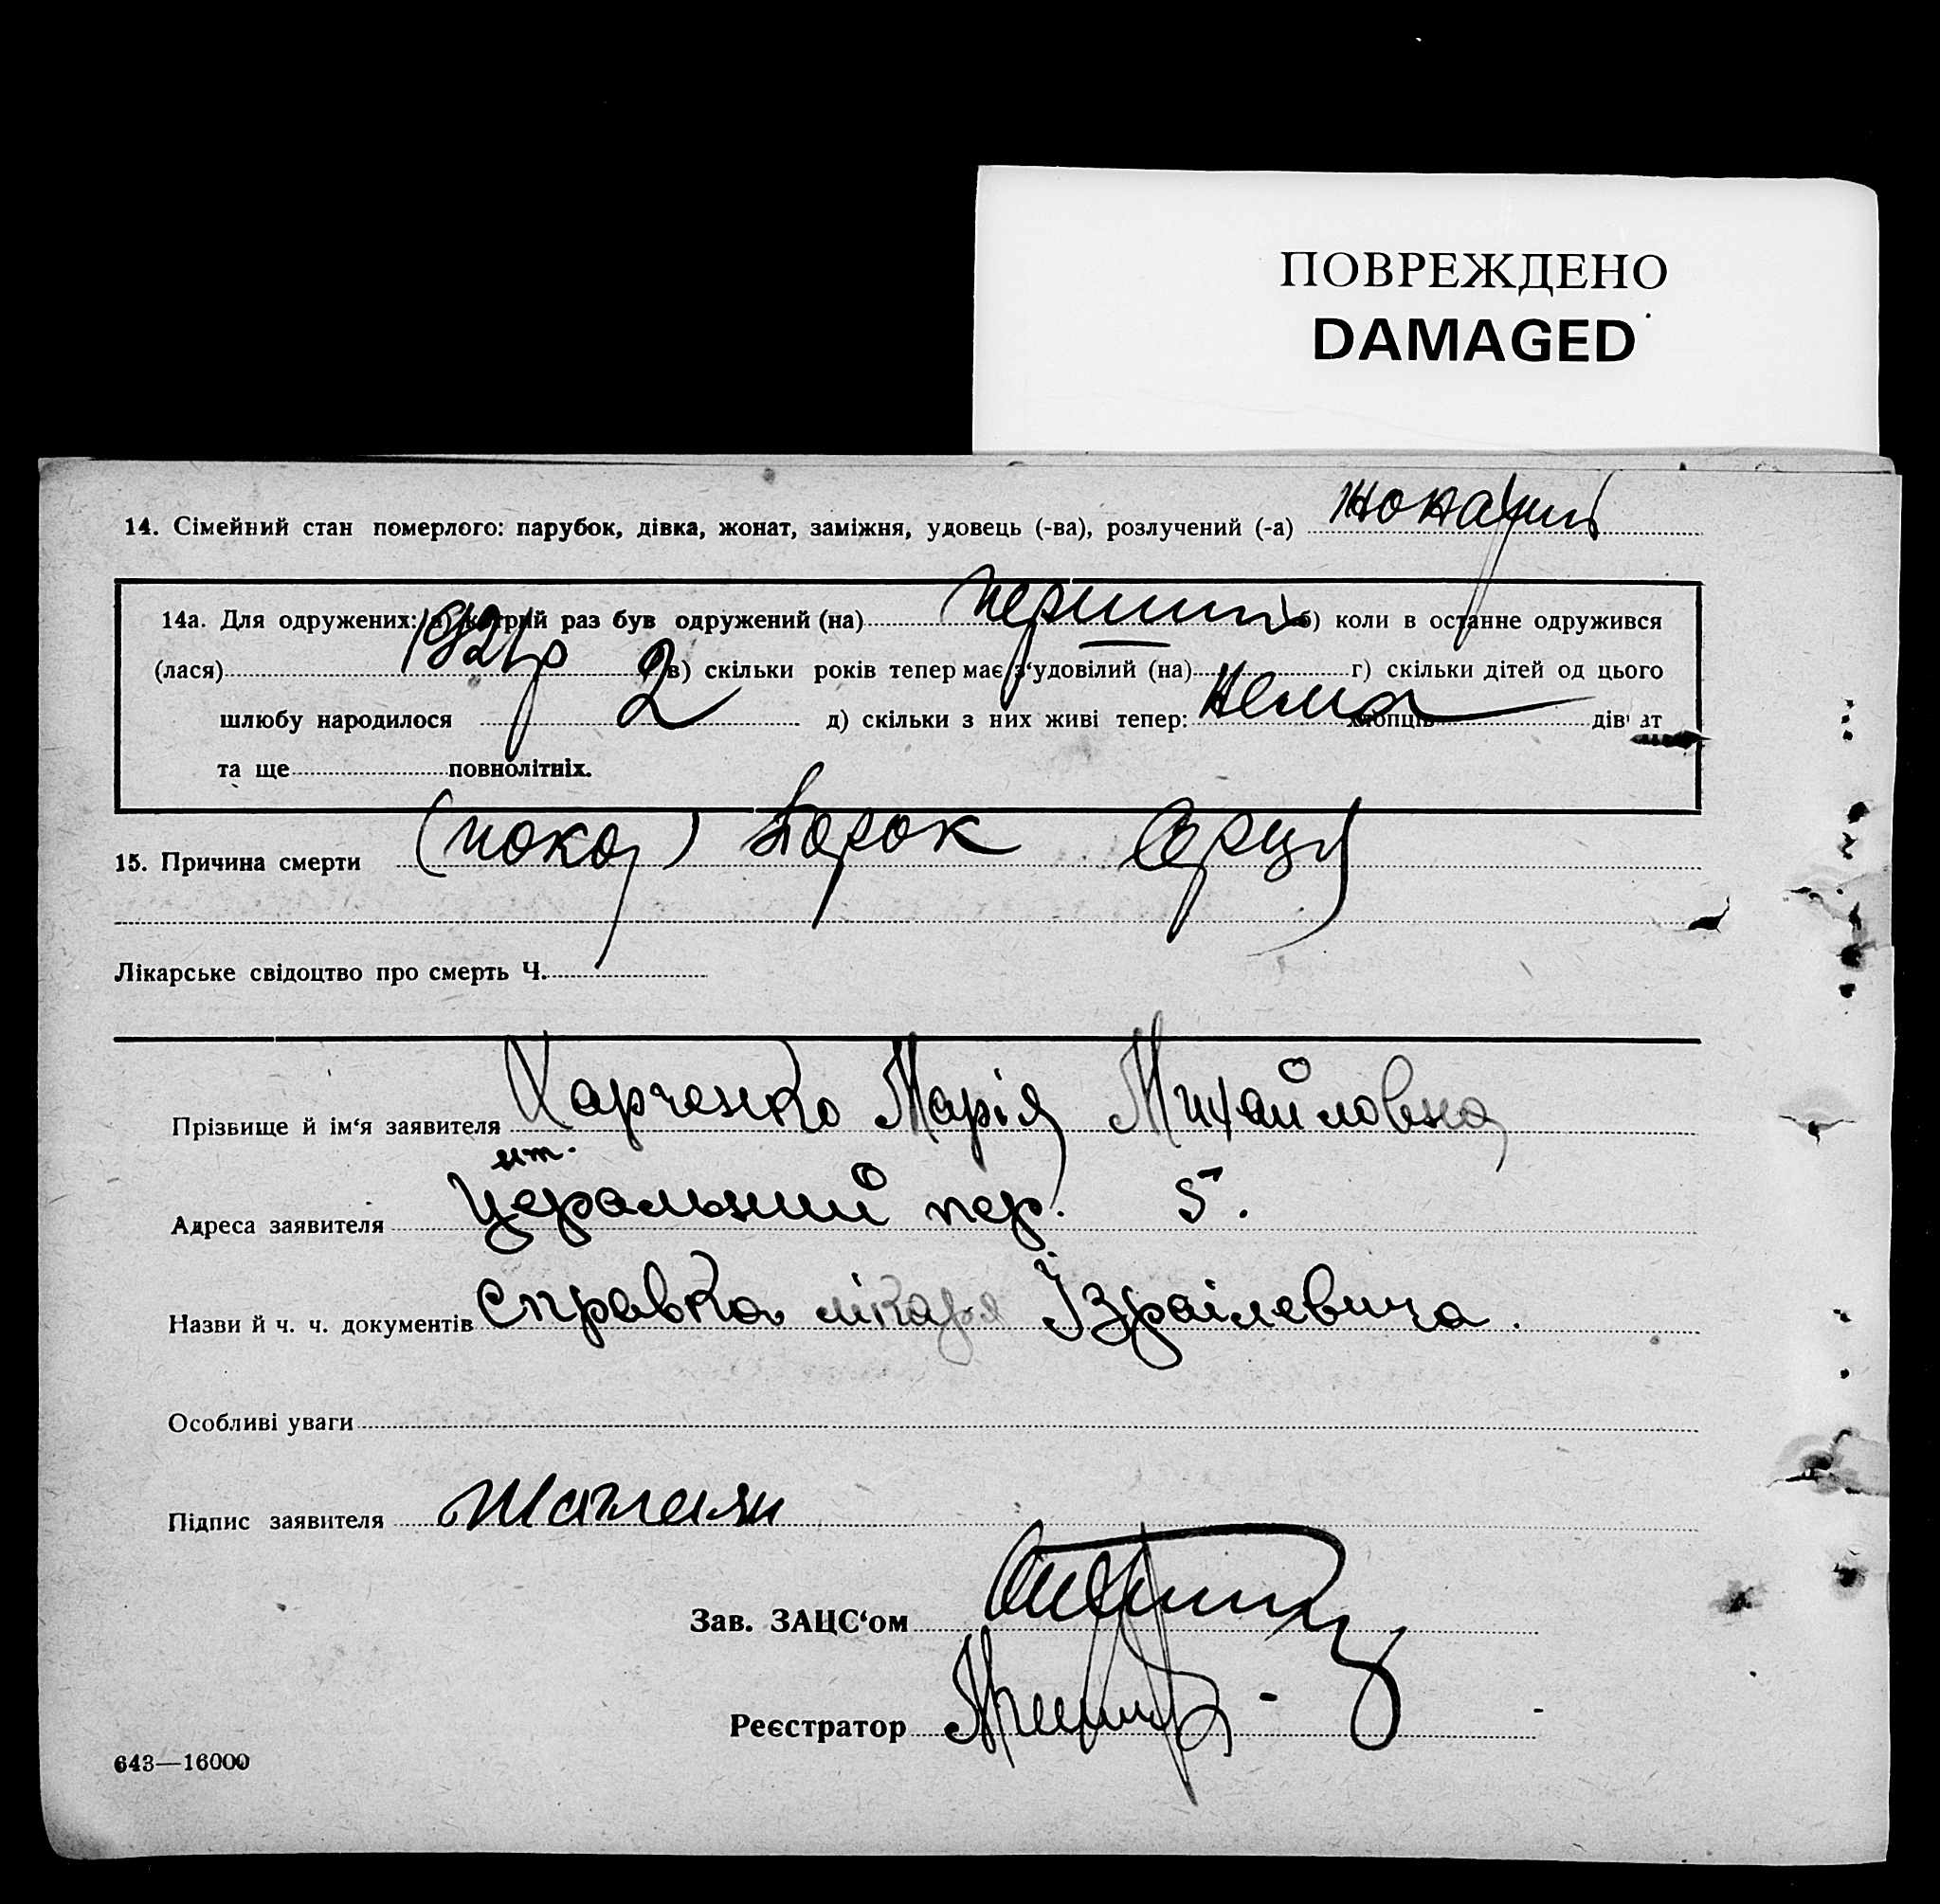 ПОВРЕЖДЕНО
DAMAGED
14. Сімейний стан померлого: парубок, дівка, жонат, заміжня, удовець (-ва), розлучений (-а) жонатий
14а. Для одружених: а) котрий раз був одружений (на) перший б) коли в останне одружився
(лася) 1921р в) скільки років тепер має з‘удовілий (на) г) скільки дітей од цього
шлюбу народилося 2 д) скільки з них живі тепер: нема хлопців дівчат
та ще повнолітніх.
15. Причина смерти порок серця
Лікарське свідоцтво про смерть Ч.
Прізвище й ім‘я заявителя Харченко Марія Михайловна
Адреса заявителя пер. 5.
Назви й ч. ч. документів Справка лікаря Ізраілевича.
Особливі уваги
Підпис заявителя
Зав. ЗАЦС‘ом
Реєстратор
643—16000